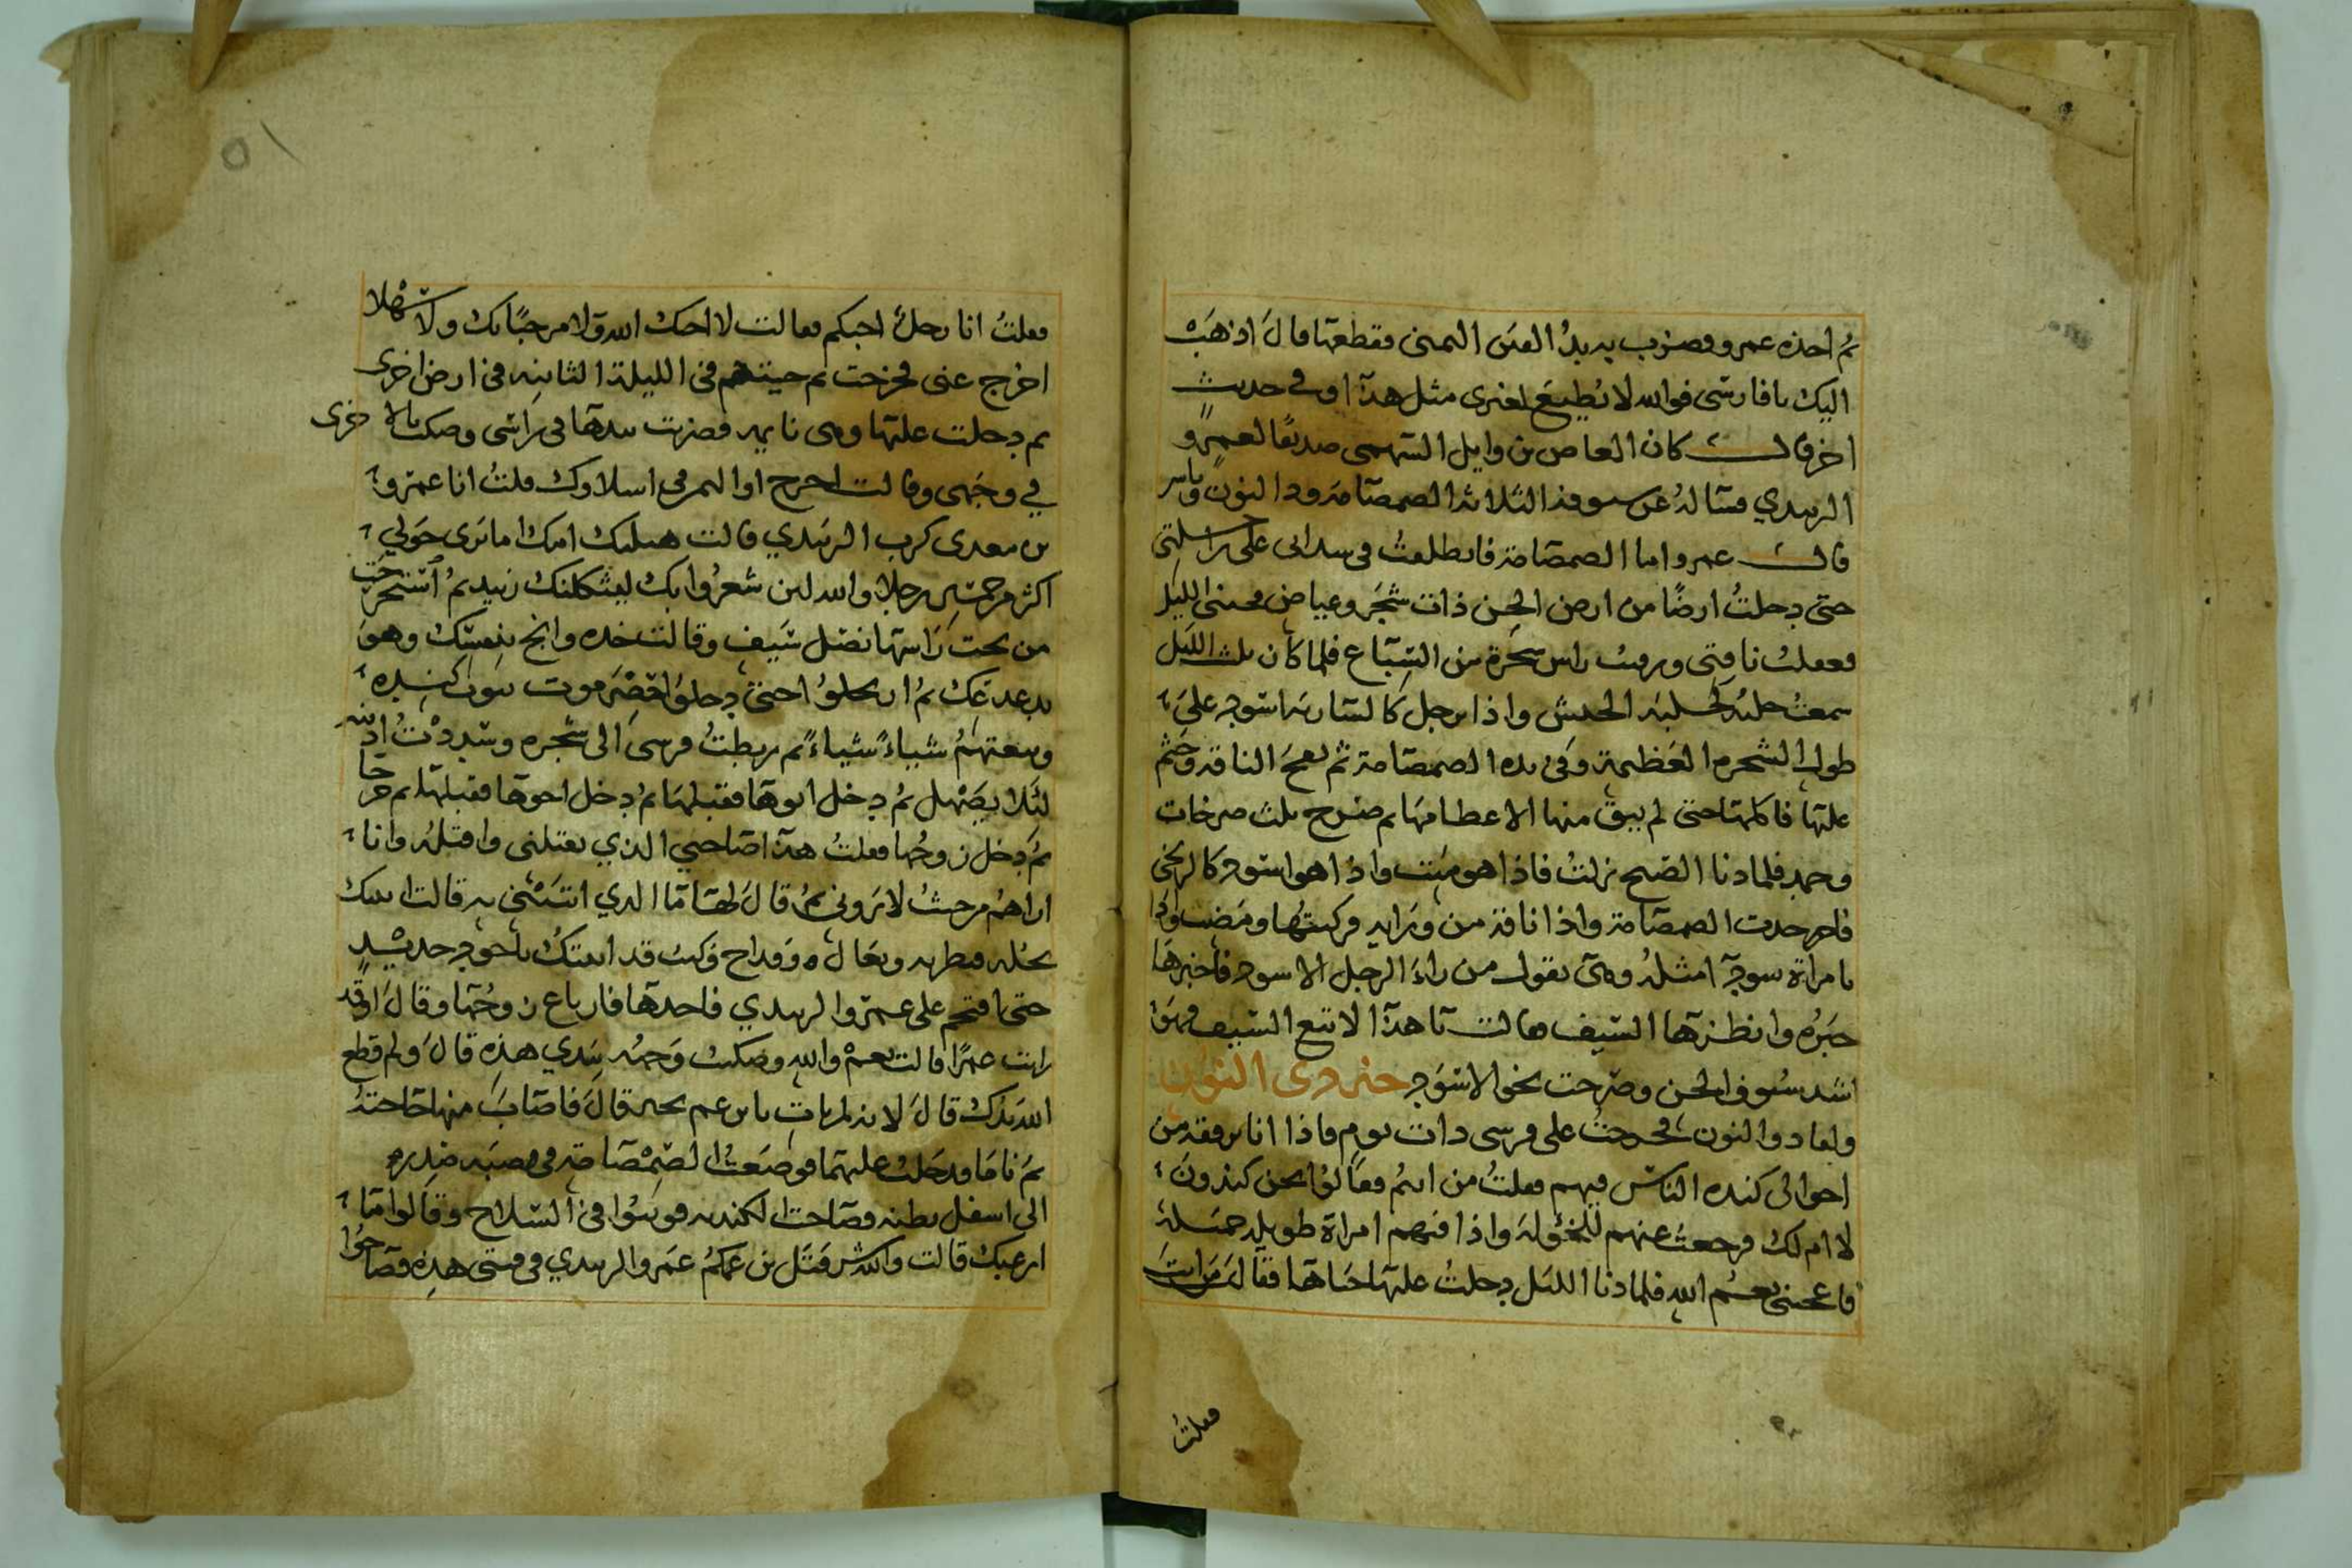 ثم احذه عمرو وصرب به يدُ الفرس اليمنى فقطعها قالَ اذهَبْ
اليك يا فارسى فوالله لا يُطيعَ لغيرى مثل هذا وفى حديث
اخر قالــــ كان العاص بن وايل السهمى صديقًا لعمرٍو
الزبيدي فساله عن سيوفه الثلاثه الصمصامة وذا النون وياسر
قالــــ عمرو اما الصمصامة فانطلقتُ فى على راحلتى
حتى دخلتُ ارضًا من ارض الجن ذات شجَر وغياض فجننى الليل
فعقلت ناقتى ورقيت راس شجرة من السِبَاع فلما كان ثلث الليل
سمعتُ جلبة كجلبة الجيش واذا برجل كالسارية اسود علىَ
طول الشجره العَظيمة وفى يده الصمصامة ثم بعج الناقة وَجثم
عليها فاكلها حتى لم يبق منها الا عظامها ثم صرخ ثلث صرخات
وخمد فلما دنا الصبح نزلتُ فاذا هو ميت واذا هو اسود كالزنجى
فاخدت الصمصامة واذا ناقة من ورايه فركبتُها ومَضيت واذا
بامراة سودآ امثله وهى تقول من راءَ الرجل الاسود فاخبرها
خبَرُه وانظرها السَيف فقالت يا هذا لا تبع السَيف فهوَ
اشد سُيوف الجن وصرخت نحو الاسوَد خبر ذى النون
واما ذو النون فخرجتُ على فرسى ذات يوم فاذا انا برفقه من
احوالى كنده الناس فيهم فقلتُ من انتم فقالوُا نحن كنديون
لا ام لك فرجعتُ عنهم للخؤلة واذا فيهم امراة طويله جميلة
فاعجبنى بعسم الله فلما دنا الليل دخلتُ عليها خباها فقالت من انت
فقلتُ
فقلتُ انا رجلٌ احبكم فقالت لا احبك الله ولا مرحبًا بك ولا سَهْلا
اخرج عنى فخرجت ثم جيتهم فى الليلة الثانيه فى ارض اخرى
ثم دخلت عليها وهى نايمه فضربت بيدها فى راسى وصكت بالاخرى
في وجَهى وقالت اخرج او اسلاوك قلتُ انا عمرو
بن معدى كرب الزبيدي قالت هبلتك امك اما ترى حَولي
اكثر من خمسين رجلا والله لين شعرُوا بك ليثكلنك زبيد ثمُ استخرجَت
من تحت رَاسها نصْل سَيف وقالت خده وانج بنفسك وهوَ
ثمُ ارتحلوُا حتىَ دخلوُا حضْرَموت بيوت كنِده
وتبعتهمُ شيئاءً شيئاءً ثم ربطتُ فرسىَ الى شجره وشددْتُ اذنيه
لئَلا يصَهل ثمُ دخل ابوها فقبلهَا ثمُ دخل اخوها فقبلها ثم خرجا
ثمَ دخل زوجُها فقلتُ هذا صَاحبي الذي يقتلنى واقتلُه وانا
اراهُم من حيثُ لا يَرونى ثمُ قالَ لها ما الذي اتَيتنى به قالت اتيتك
بحُله مطريه ونعَال وقداح وَكنت قد اتيتك باجود حديد
حتى اقتحم على عمرو الزبيدي فاخدها فارتاع زوجُها وقالَ اوقد
رايت عمرًا قالت نعمْ والله وصككت وَجهُه بيَدي هذهِ قالَ ولم قطع
الله يدَك قالَ لانه لم ياتِ يابن عم بخير قالَ فاصَابَ منها حَاجتهُ
ثمَ نامَا فدخلتُ عليهما فوضعَتُ الصَمْصَامة فى قصبَة صَدِره
الى اسفل بطنه فصاحت الكنديه فوثبوُا فى السلاح وقالوا ما
ارعبك قالت والله قتَل بن عمكمُ عمَرو الزبيدي فى قبتى هذِه فصَاحوُا